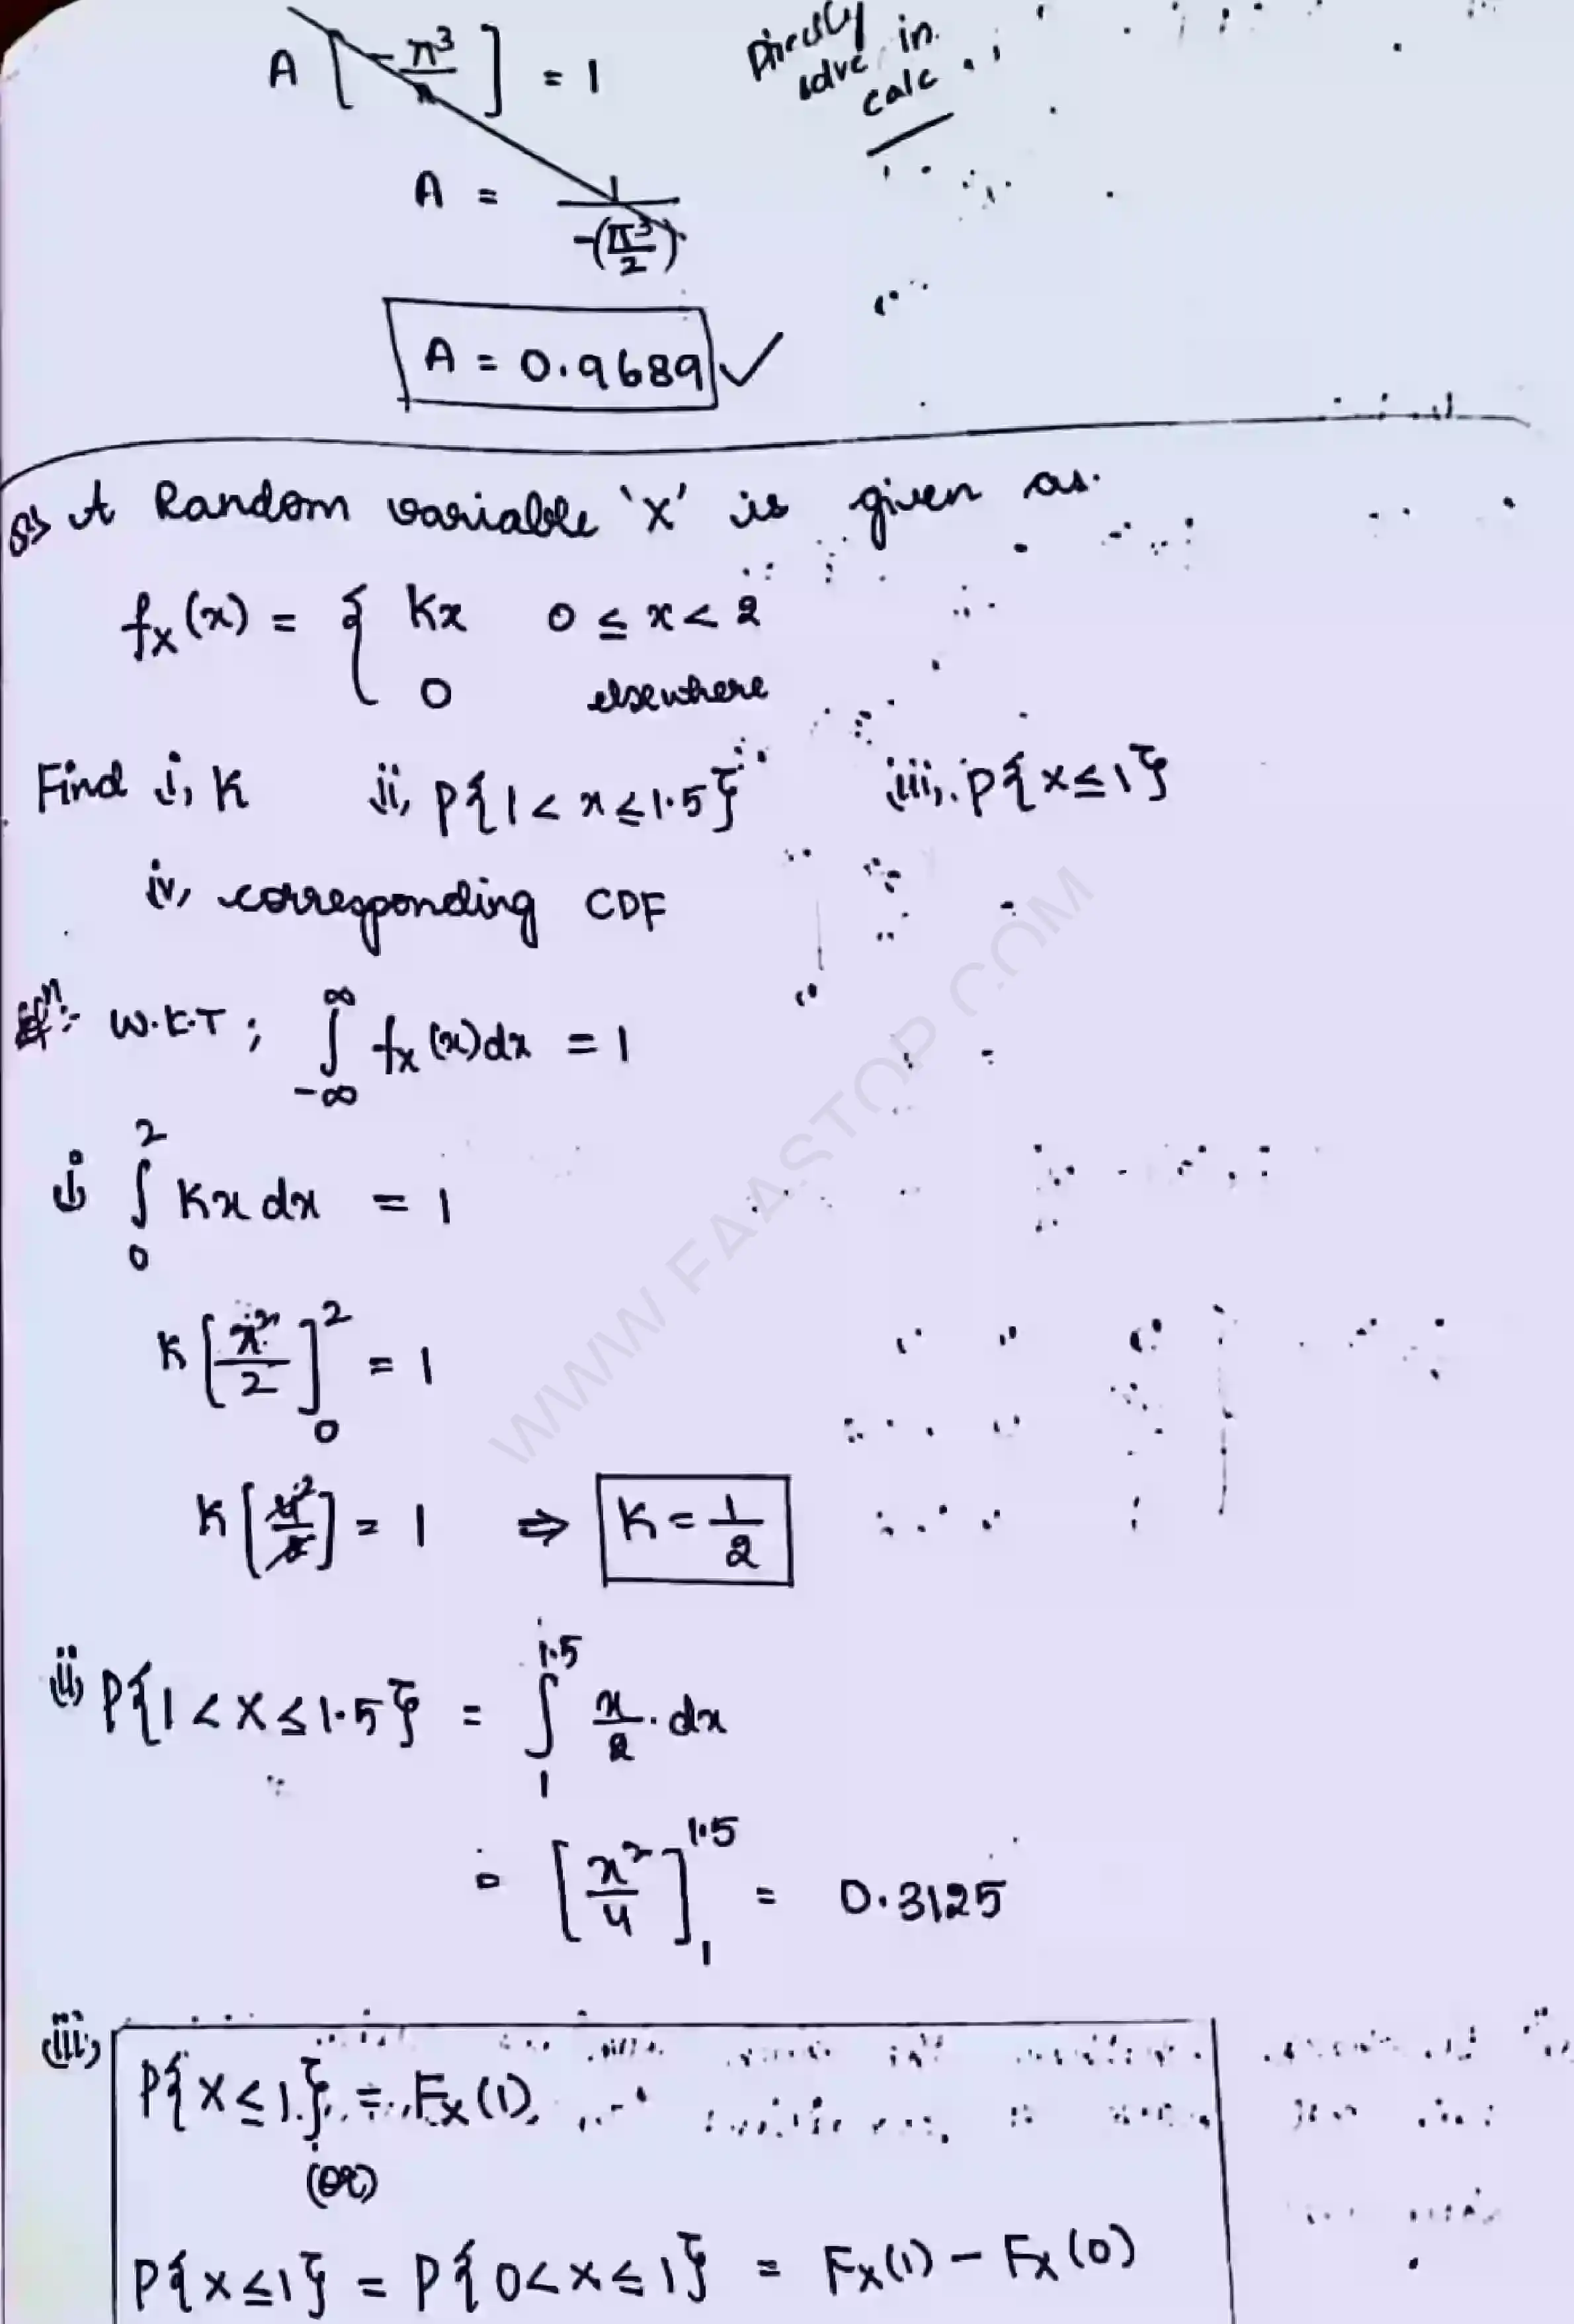 A [ -π³/2 ] = 1
Directly solve in calc
A = 1/-(π³/2)
A = 0.9689 ✓
Q) A Random variable 'X' is given as.
fx(x) = { Kx 0 ≤ x < 2
0 elsewhere
Find i, K ii, P{1 < x ≤ 1.5} iii, P{X ≤ 1}
iv, corresponding CDF
W.K.T ; ∫_{-∞}^{∞} fx(x)dx = 1
i, ∫_0^2 Kx dx = 1
K [x²/2]_0^2 = 1
K [4/2] = 1 ⇒ K = 1/2
ii, P{1 < X ≤ 1.5} = ∫_1^{1.5} x/2 . dx
= [x²/4]_1^{1.5} = 0.3125
iii, P{X ≤ 1} = Fx(1)
(or)
P{X ≤ 1} = P{0 < X ≤ 1} = Fx(1) - Fx(0)
WWW.FAASTOP.COM